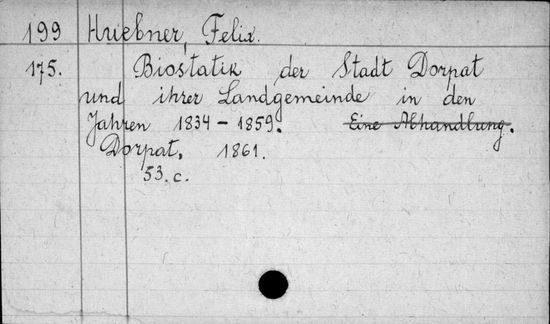 199 Huebner, Felix.
175. Biostatik der Stadt Dorpat
und ihrer Landgemeinde in den
Jahren 1834 - 1859. Eine Abhandlung.
Dorpat, 1861.
53. c.